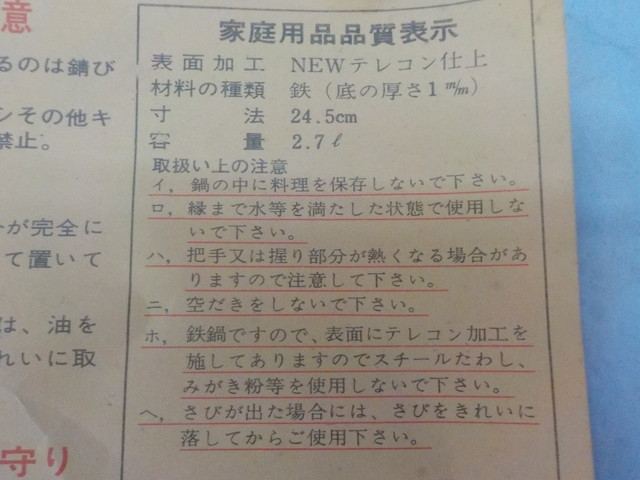 意
るのは錆び
ンその他キ
禁止。
が完全に
て置いて
は、油を
れいに取
守り
家庭用品品質表示
表面加工 NEWテレコン仕上
材料の種類 鉄（底の厚さ1m/m）
寸法 24.5cm
容量 2.7ℓ
取扱い上の注意
イ，鍋の中に料理を保存しないで下さい。
ロ，縁まで水等を満たした状態で使用しな
いで下さい。
ハ，把手又は握り部分が熱くなる場合があ
りますので注意して下さい。
ニ，空だきをしないで下さい。
ホ，鉄鍋ですので、表面にテレコン加工を
施してありますのでスチールたわし、
みがき粉等を使用しないで下さい。
ヘ，さびが出た場合には、さびをきれいに
落してからご使用下さい。